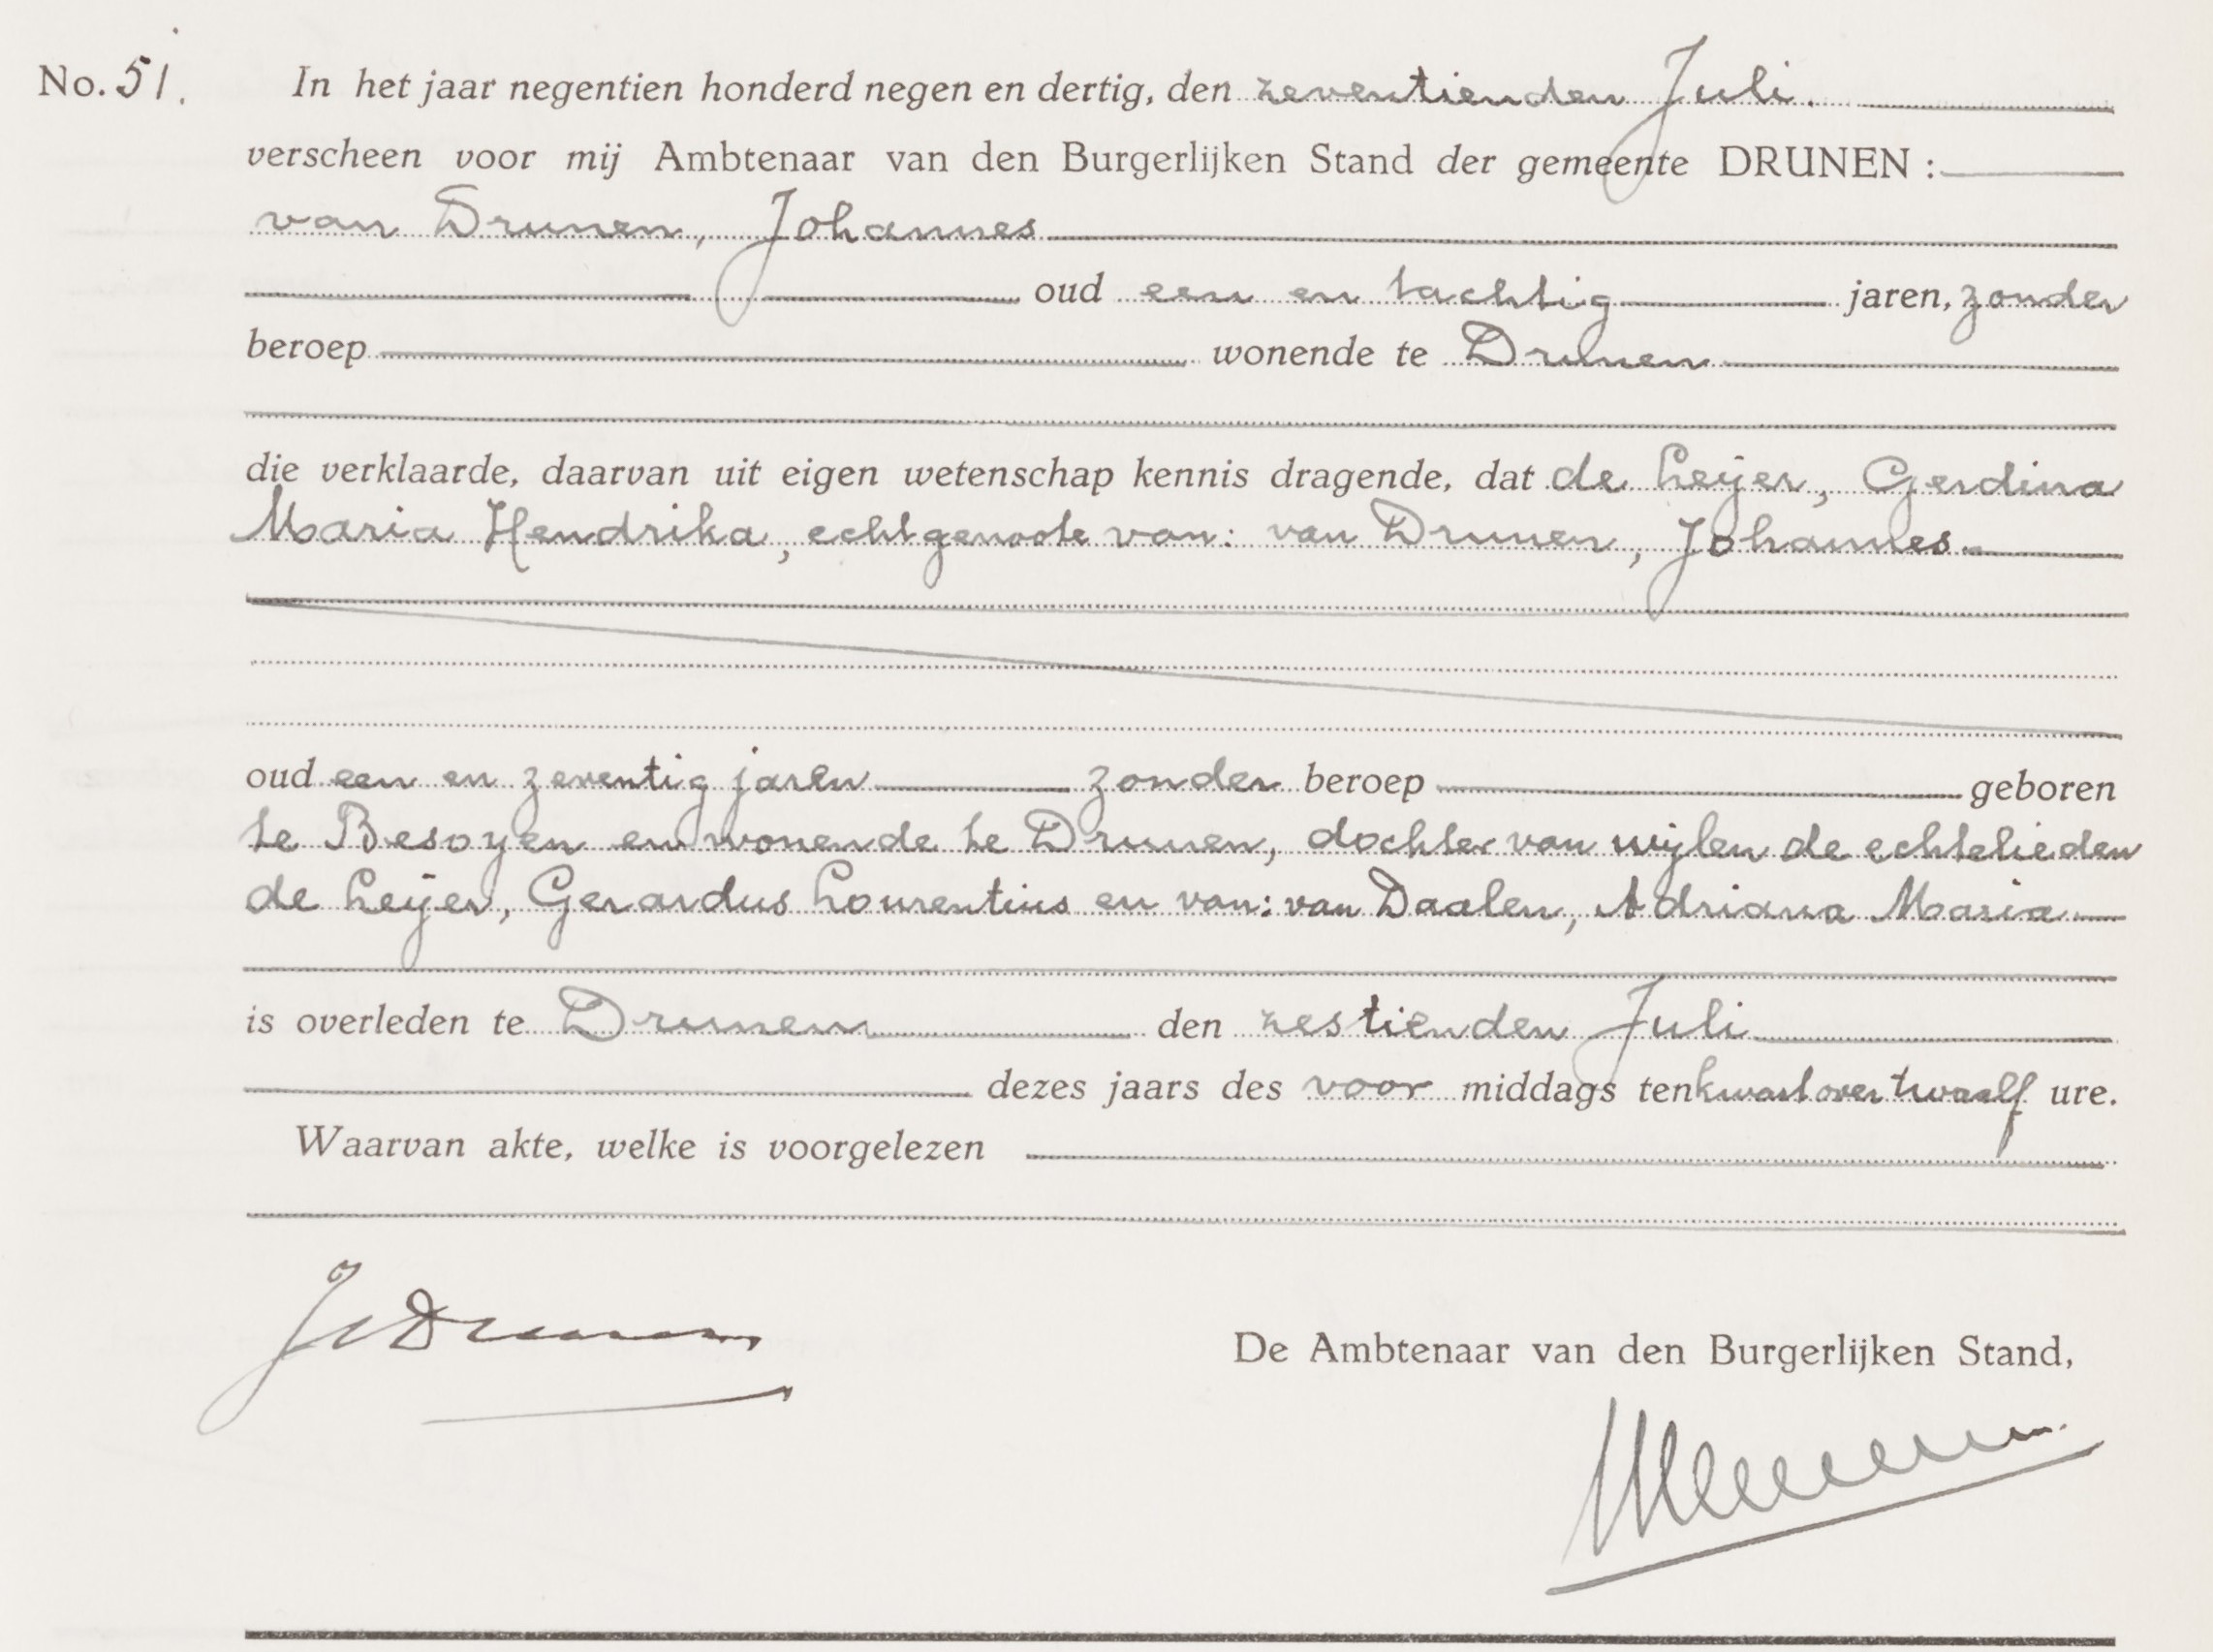 No. 51. In het jaar negentien honderd negen en dertig, den zeventienden Juli.
verscheen voor mij Ambtenaar van den Burgerlijken Stand der gemeente DRUNEN :
van Drunen, Johannes
oud een en tachtig jaren, zonder
beroep wonende te Drunen
die verklaarde, daarvan uit eigen wetenschap kennis dragende, dat de Leijer, Gerdina
Maria Hendrika, echtgenoote van: van Drunen, Johannes.
oud een en zeventig jaren zonder beroep geboren
te Besoyen en wonende te Drunen, dochter van wijlen de echtelieden
de Leijer, Gerardus Lourentius en van: van Daalen, Adriana Maria
is overleden te Drunen den zestienden Juli
dezes jaars des voor middags ten kwart over twaalf ure.
Waarvan akte, welke is voorgelezen
JvDrunen
De Ambtenaar van den Burgerlijken Stand,